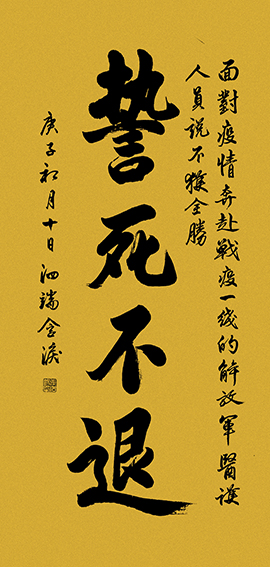 面對疫情奔赴戰疫一线的解放軍醫護
人員說不獲全勝
誓死不退
庚子初月十日泗端含淚